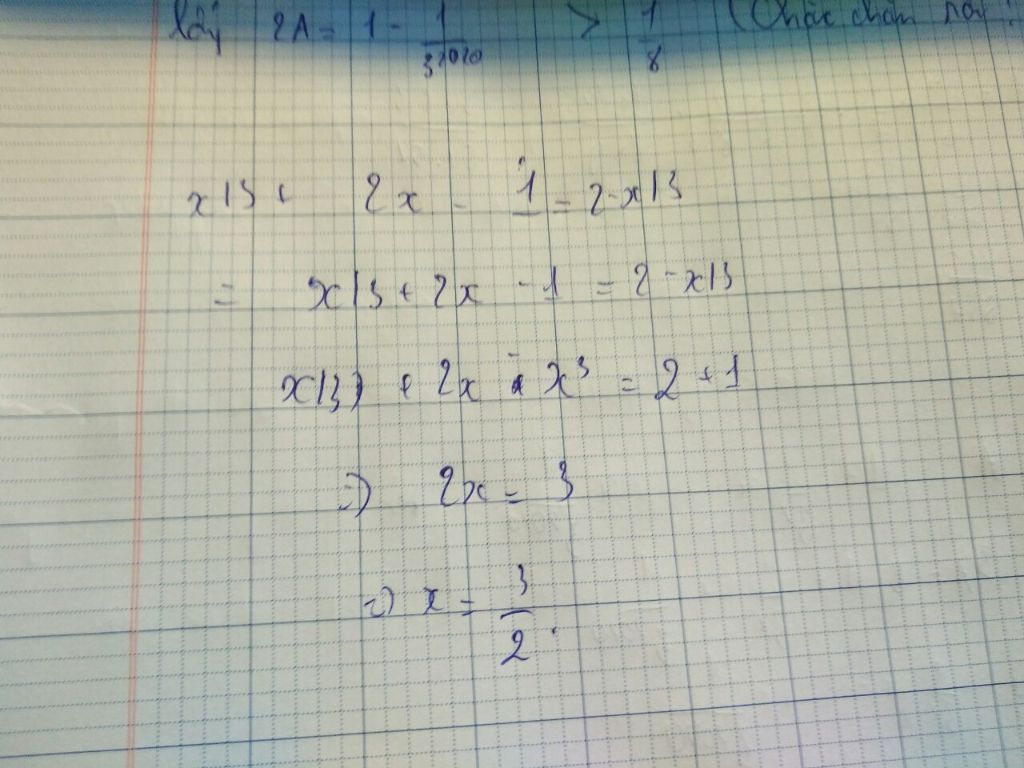 lấy 2A = 1 - 1/3^2020 > 1/8 (Chắc chắn
x|3 + 2x - 1 = 2 - x|3
= x|3 + 2x - 1 = 2 - x|3
x|3) + 2x x³ = 2 + 1
=) 2x = 3
=) x = 3/2.